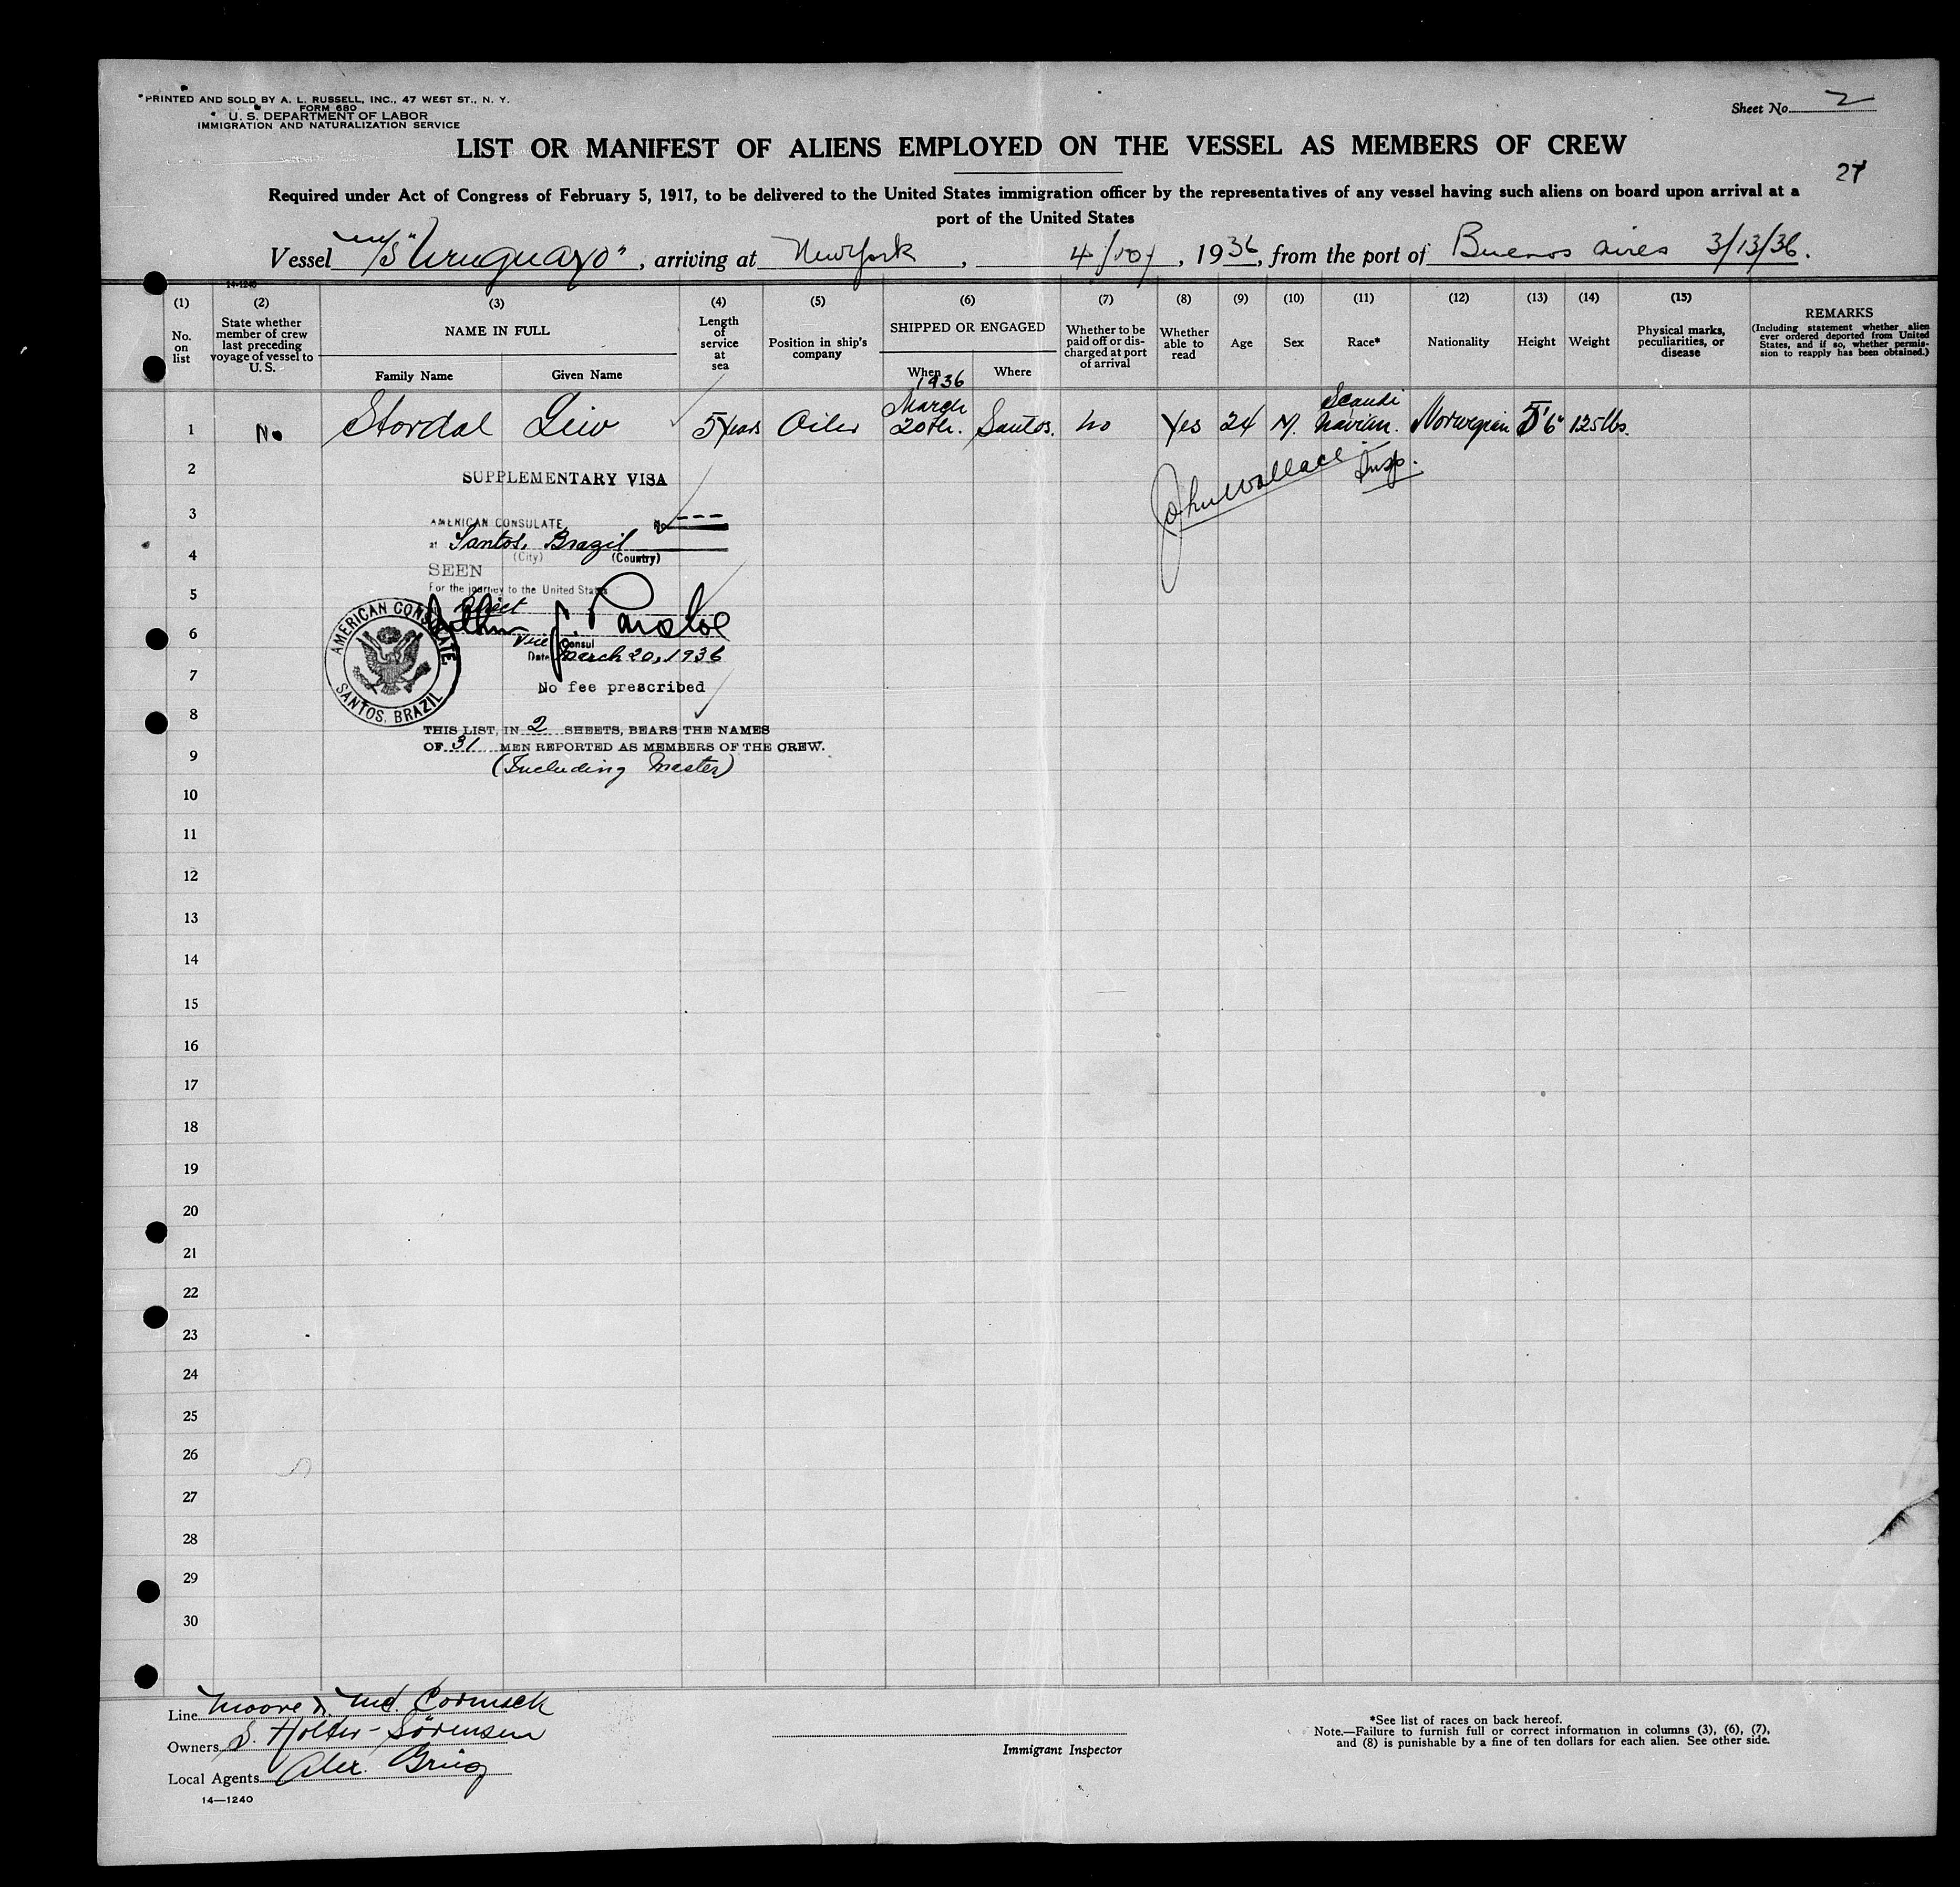 PRINTED AND SOLD BY A. L. RUSSELL, INC., 47 WEST ST., N. Y.
FORM 680
U. S. DEPARTMENT OF LABOR
IMMIGRATION AND NATURALIZATION SERVICE
Sheet No. 2
LIST OR MANIFEST OF ALIENS EMPLOYED ON THE VESSEL AS MEMBERS OF CREW
Required under Act of Congress of February 5, 1917, to be delivered to the United States immigration officer by the representatives of any vessel having such aliens on board upon arrival at a
port of the United States
Vessel m/s "Uruguayo", arriving at New York, 4/10/, 1936, from the port of Buenos Aires 3/13/36.
14-1240
(1) (2) (3) (4) (5) (6) (7) (8) (9) (10) (11) (12) (13) (14) (15)
No. on list
State whether member of crew last preceding voyage of vessel to U. S.
NAME IN FULL
Family Name Given Name
Length of service at sea
Position in ship's company
SHIPPED OR ENGAGED
When Where
Whether to be paid off or discharged at port of arrival
Whether able to read
Age
Sex
Race*
Nationality
Height
Weight
Physical marks, peculiarities, or disease
REMARKS
(Including statement whether alien ever ordered deported from United States, and if so, whether permission to reapply has been obtained.)
1936
1 No Stordal Leiv 5 Years Oiler March 20th. Santos. No Yes 24 M. Scandinavian. Norwegian 5'6" 125 lbs.
John Wallace Insp.
2
SUPPLEMENTARY VISA
3
AMERICAN CONSULATE, No ---
at Santos, Brazil
4
(City) (Country)
SEEN
For the journey to the United States
5
direct
6
Vice Consul
Date March 20, 1936
7
No fee prescribed
AMERICAN CONSULATE
SANTOS, BRAZIL
8
THIS LIST, IN 2 SHEETS, BEARS THE NAMES
OF 31 MEN REPORTED AS MEMBERS OF THE CREW.
9
(Including Master)
10
11
12
13
14
15
16
17
18
19
20
21
22
23
24
25
26
27
28
29
30
Line Moore & McCormack
Owners S. Holter-Sörensen
Local Agents Alex. Grieg
14—1240
Immigrant Inspector
*See list of races on back hereof.
Note.—Failure to furnish full or correct information in columns (3), (6), (7),
and (8) is punishable by a fine of ten dollars for each alien. See other side.